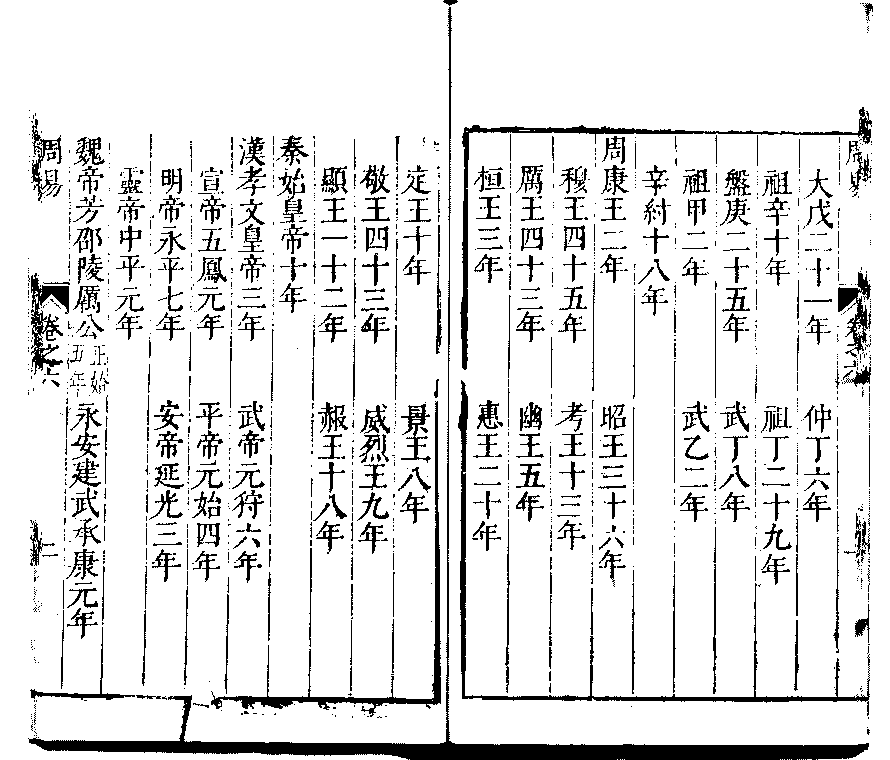 大戊二十一年　仲丁六年
祖辛十年　祖丁二十九年
盤庚二十五年　武丁八年
祖甲二年　武乙二年
辛紂十八年
周康王二年　昭王三十六年
穆王四十五年　考王十三年
厲王四十三年　幽王五年
桓王三年　惠王二十年
定王十年　景王八年
敬王四十三年　威烈王九年
顯王一十二年　赧王十八年
秦始皇帝十年
漢孝文皇帝三年　武帝元狩六年
宣帝五鳳元年　平帝元始四年
明帝永平七年　安帝延光三年
靈帝中平元年
魏帝芳邵陵厲公正始五年　永安建武承康元年
周易　卷之六　二